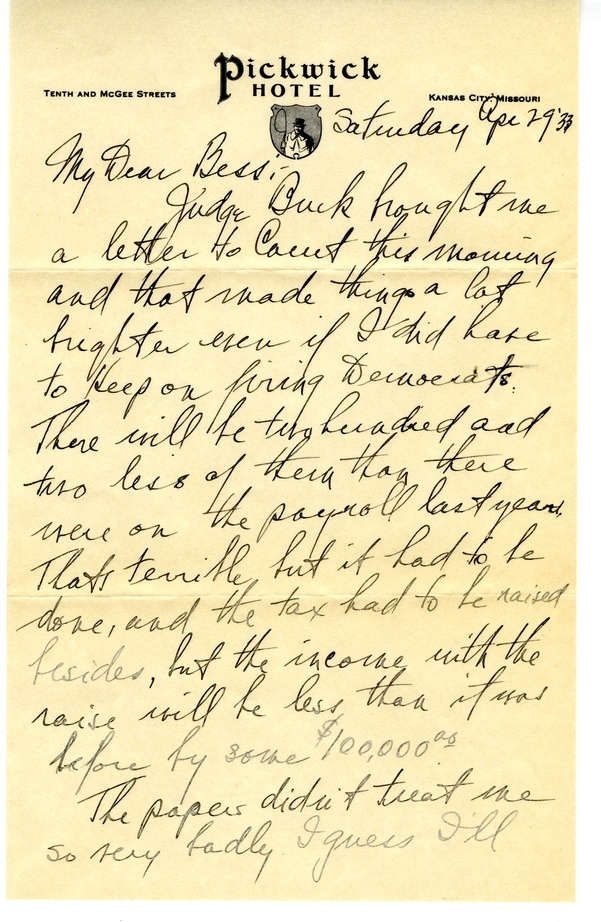 Pickwick
HOTEL
TENTH AND MCGEE STREETS
KANSAS CITY, MISSOURI
Saturday Apr 29 '33
My Dear Bess:-
Judge Buck brought me
a letter to Court this morning
and that made things a lot
brighter even if I did have
to keep on firing Democrats.
There will be two hundred and
two less of them than there
were on the payroll last year.
Thats terrible but it had to be
done, and the tax had to be raised
besides, but the income with the
raise will be less than it was
before by some $100,000 00
The papers didn't treat me
so very badly I guess I'll